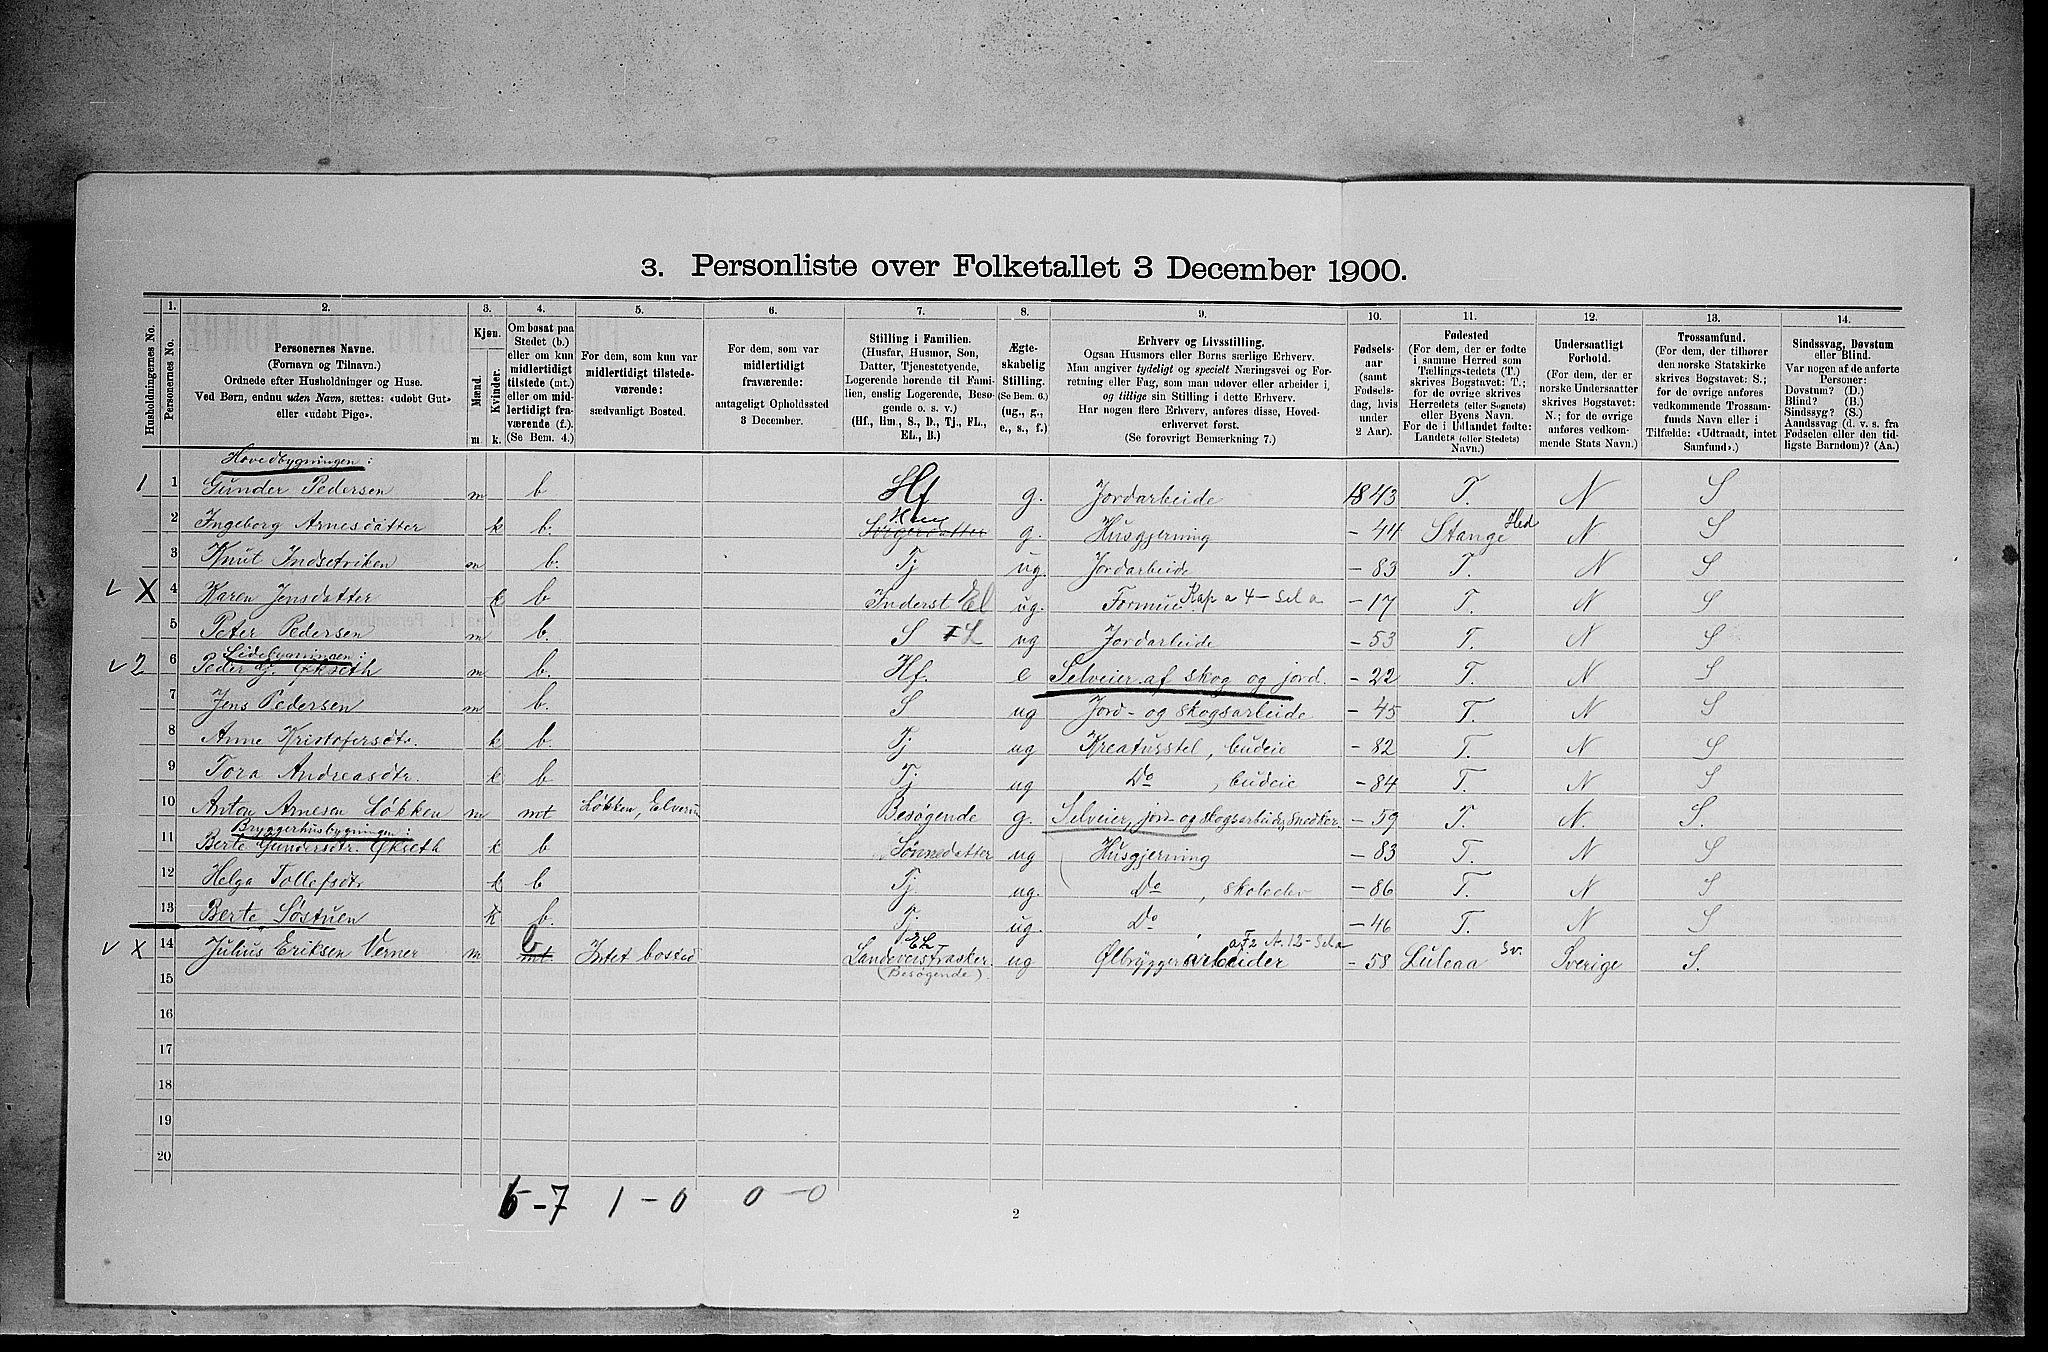 3. Personliste over Folketallet 3 December 1900.
Husholdningernes No.
1.
Personernes No.
2.
Personernes Navne.
(Fornavn og Tilnavn.)
Ordnede efter Husholdninger og Huse.
Ved Børn, endnu uden Navn, sættes: «udøbt Gut»
eller «udøbt Pige».
3.
Kjøn.
Mænd.
Kvinder.
m.
k.
4.
Om bosat paa
Stedet (b.)
eller om kun
midlertidigt
tilstede (mt.)
eller om mid-
lertidigt fra-
værende (f.).
(Se Bem. 4.)
5.
For dem, som kun var
midlertidigt tilstede-
værende:
sædvanligt Bosted.
6.
For dem, som var
midlertidigt
fraværende:
antageligt Opholdssted
3 December.
7.
Stilling i Familien.
(Husfar, Husmor, Søn,
Datter, Tjenestetyende,
Logerende hørende til Fami-
lien, enslig Logerende, Besø-
gende o. s. v.)
(Hf., Hm., S., D., Tj., FL.,
EL., B.)
8.
Ægte-
skabelig
Stilling.
(Se Bem. 6.)
(ug., g.,
e., s., f.)
9.
Erhverv og Livsstilling.
Ogsaa Husmors eller Børns særlige Erhverv.
Man angiver tydeligt og specielt Næringsvei og For-
retning eller Fag, som man udøver eller arbeider i,
og tillige sin Stilling i dette Erhverv.
Har nogen flere Erhverv, anføres disse, Hoved-
erhvervet først.
(Se forøvrigt Bemerkning 7.)
10.
Fødsels-
aar
(samt
Fødsels-
dag, hvis
under
2 Aar).
11.
Fødested
(For dem, der er fødte
i samme Herred som
Tællings-stedets (T.)
skrives Bogstavet: T.;
for de øvrige skrives
Herredets (eller Sognets)
eller Byens Navn.
For de i Udlandet fødte:
Landets (eller Stedets)
Navn.)
12.
Undersaatligt
Forhold.
(For dem, der er
norske Undersaatter
skrives Bogstavet:
N.; for de øvrige
anføres vedkom-
mende Stats Navn.)
13.
Trossamfund.
(For dem, der tilhører
den norske Statskirke
skrives Bogstavet: S.;
for de øvrige anføres
vedkommende Trossam-
funds Navn eller i
Tilfælde: «Udtraadt, intet
Samfund».)
14.
Sindssvag, Døvstum
eller Blind.
Var nogen af de anførte
Personer:
Døvstum? (D.)
Blind? (B.)
Sindssyg? (S.)
Aandssvag (d. v. s. fra
Fødselen eller den tid-
ligste Barndom)? (Aa.)
Hovedbygningen:
1 1 Gunder Pedersen m b Hf g. Jordarbeide 1843 T. N S
2 Ingeborg Arnesdatter k b. Sørgerdatter Hm g. Husgjerning - 44 Stange Hed N S
3 Knut Indsetviken m b. Tj ug. Jordarbeide - 83 T. N S
✓ X 4 Karen Jensdatter k b Inderst El ug. Formue Kap a 4 - Sel a - 17 T. N S
5 Peter Pedersen m b. S FL ug Jordarbeide - 53 T. N S
Sidebygningen:
✓ 2 6 Peder Øksetth m b. Hf. e Selveier af skog og jord. - 22 T. N S
7 Jens Pedersen m b. S ug Jord- og skogsarbeide - 45 T. N S
8 Anne Kristofersdtr. k b. Tj ug Kreaturstel, budeie - 82 T. N S
9 Tora Andreasdtr. k b Tj ug Do, budeie - 84 T. N S
10 Anton Arnesen Løkken m mt Løkken, Elverum Besøgende g. Selveier, jord- og skogsarbeide, snedker. - 59 T. N. S.
Bryggerhusbygningen:
11 Berte Gundersdtr. Øksetth k b Sønnedatter ug Husgjerning - 83 T. N S
12 Helga Tollefsdtr k b Tj ug. Do, skoleelev - 86 T. N S
13 Berte Søstuen k b. Tj. ug. Do - 46 T. N S
✓ X 14 Julius Eriksen Verner m mt. b Intet bosted EL Landeveistrasker (Besøgende) ug Ølbryggeriarbeider a F2 A. 12 - Sel a - 58 Luleaa Sv. Sverige S.
15
16
17
18
19
20
6 - 7 1 - 0 0 - 0
2